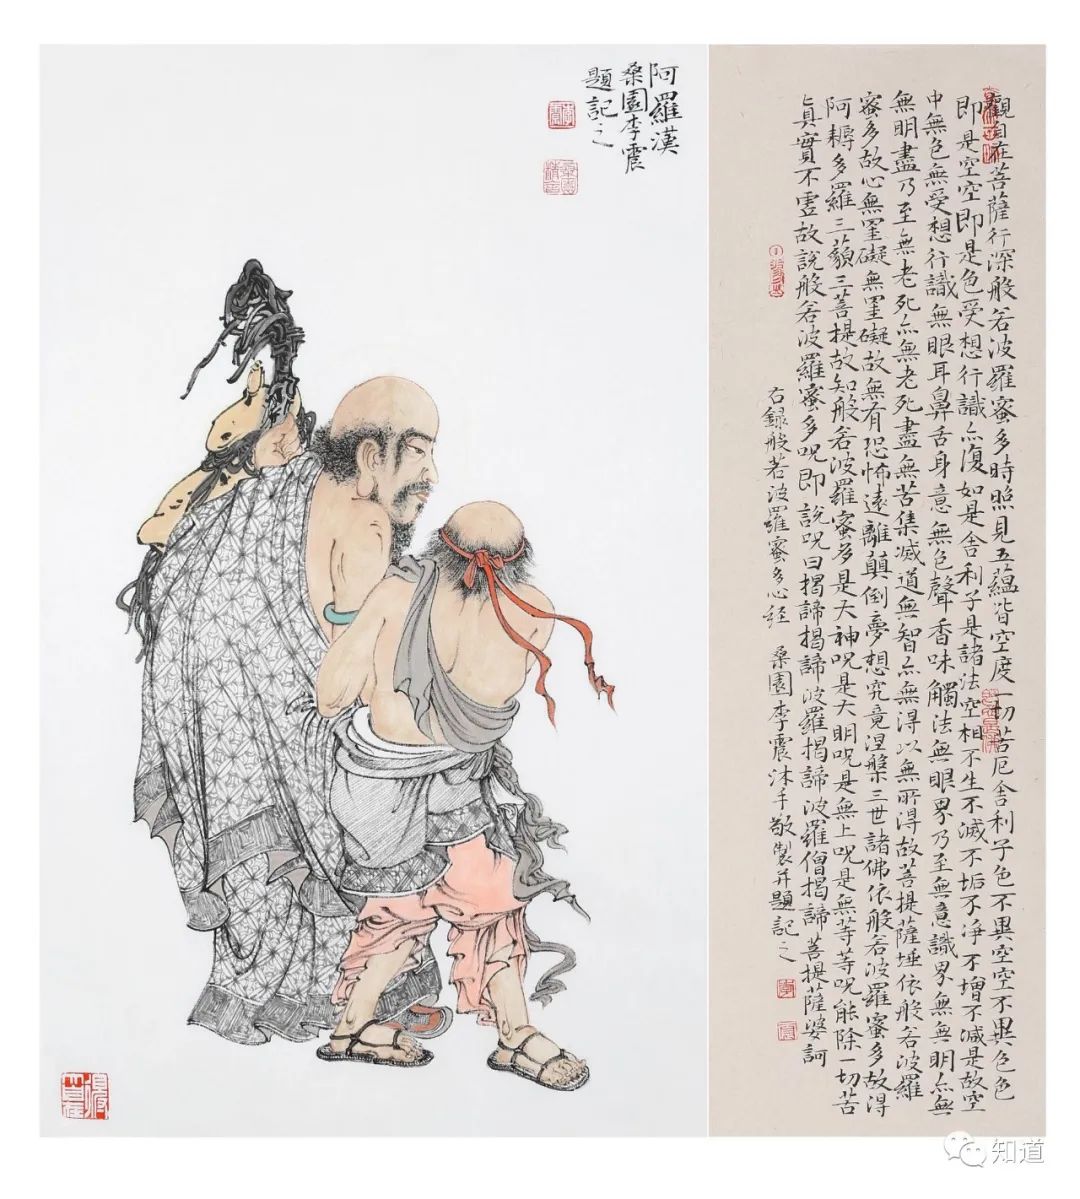 阿羅漢
桑園李震
題記之
觀自在菩薩行深般若波羅蜜多時照見五蘊皆空度一切苦厄舍利子色不異空空不異色色
即是空空即是色受想行識亦復如是舍利子是諸法空相不生不滅不垢不淨不增不減是故空
中無色無受想行識無眼耳鼻舌身意無色聲香味觸法無眼界乃至無意識界無無明亦無
無明盡乃至無老死亦無老死盡無苦集滅道無智亦無得以無所得故菩提薩埵依般若波羅
蜜多故心無罣礙無罣礙故無有恐怖遠離顛倒夢想究竟涅槃三世諸佛依般若波羅蜜多故得
阿耨多羅三藐三菩提故知般若波羅蜜多是大神呪是大明呪是無上呪是無等等呪能除一切苦
真實不虛故說般若波羅蜜多呪即說呪曰揭諦揭諦波羅揭諦波羅僧揭諦菩提薩婆訶
右錄般若波羅蜜多心經 桑園李震沐手敬製并題記之
知道